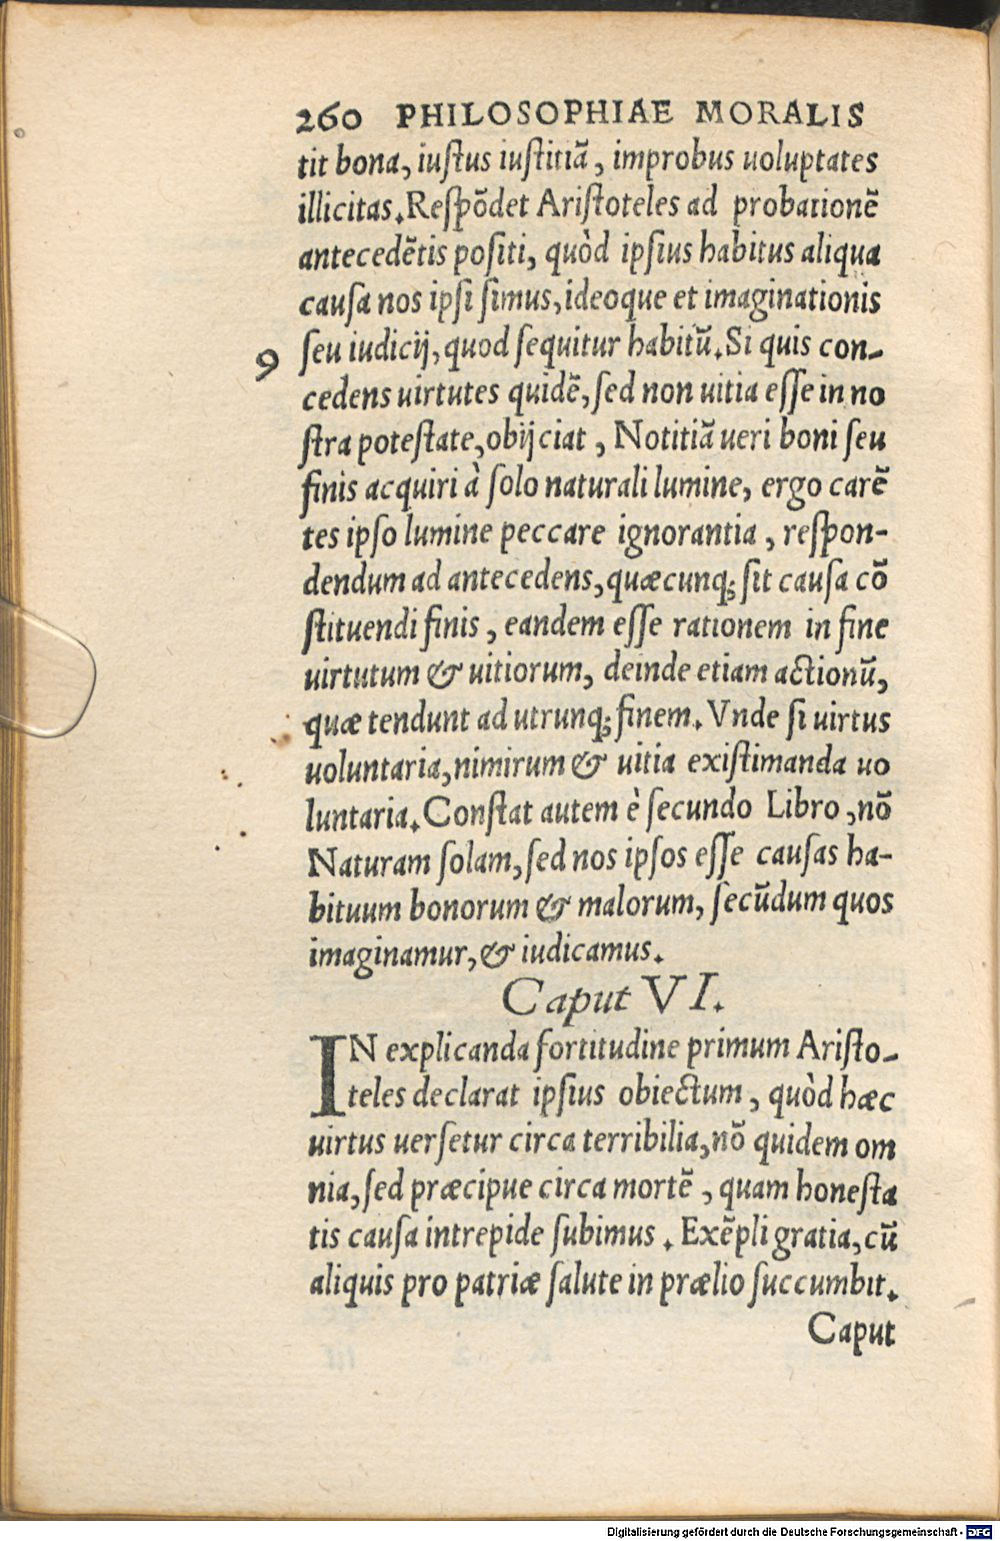 260 PHILOSOPHIAE MORALIS
tit bona, iuſtus iuſtitiã, improbus uoluptates
illicitas. Reſpõdet Ariſtoteles ad probationẽ
antecedẽtis poſiti, quòd ipſius habitus aliqua
cauſa nos ipſi ſimus, ideoque et imaginationis
9 ſeu iudicij, quod ſequitur habitũ. Si quis con-
cedens uirtutes quidẽ, ſed non uitia eſſe in no
ſtra poteſtate, obijciat, Notitiã ueri boni ſeu
finis acquiri à ſolo naturali lumine, ergo carẽ
tes ipſo lumine peccare ignorantia, reſpon-
dendum ad antecedens, quæcunq; ſit cauſa cõ
ſtituendi finis, eandem eſſe rationem in fine
uirtutum & uitiorum, deinde etiam actionũ,
quæ tendunt ad utrunq; finem. Vnde ſi uirtus
uoluntaria, nimirum & uitia exiſtimanda uo
luntaria. Conſtat autem è ſecundo Libro, nõ
Naturam ſolam, ſed nos ipſos eſſe cauſas ha-
bituum bonorum & malorum, ſecũdum quos
imaginamur, & iudicamus.
Caput VI.
IN explicanda fortitudine primum Ariſto-
teles declarat ipſius obiectum, quòd hæc
uirtus uerſetur circa terribilia, nõ quidem om
nia, ſed præcipue circa mortẽ, quam honeſta
tis cauſa intrepide ſubimus. Exẽpli gratia, cũ
aliquis pro patriæ ſalute in prælio ſuccumbit.
Caput
Digitalisierung gefördert durch die Deutsche Forschungsgemeinschaft - DFG